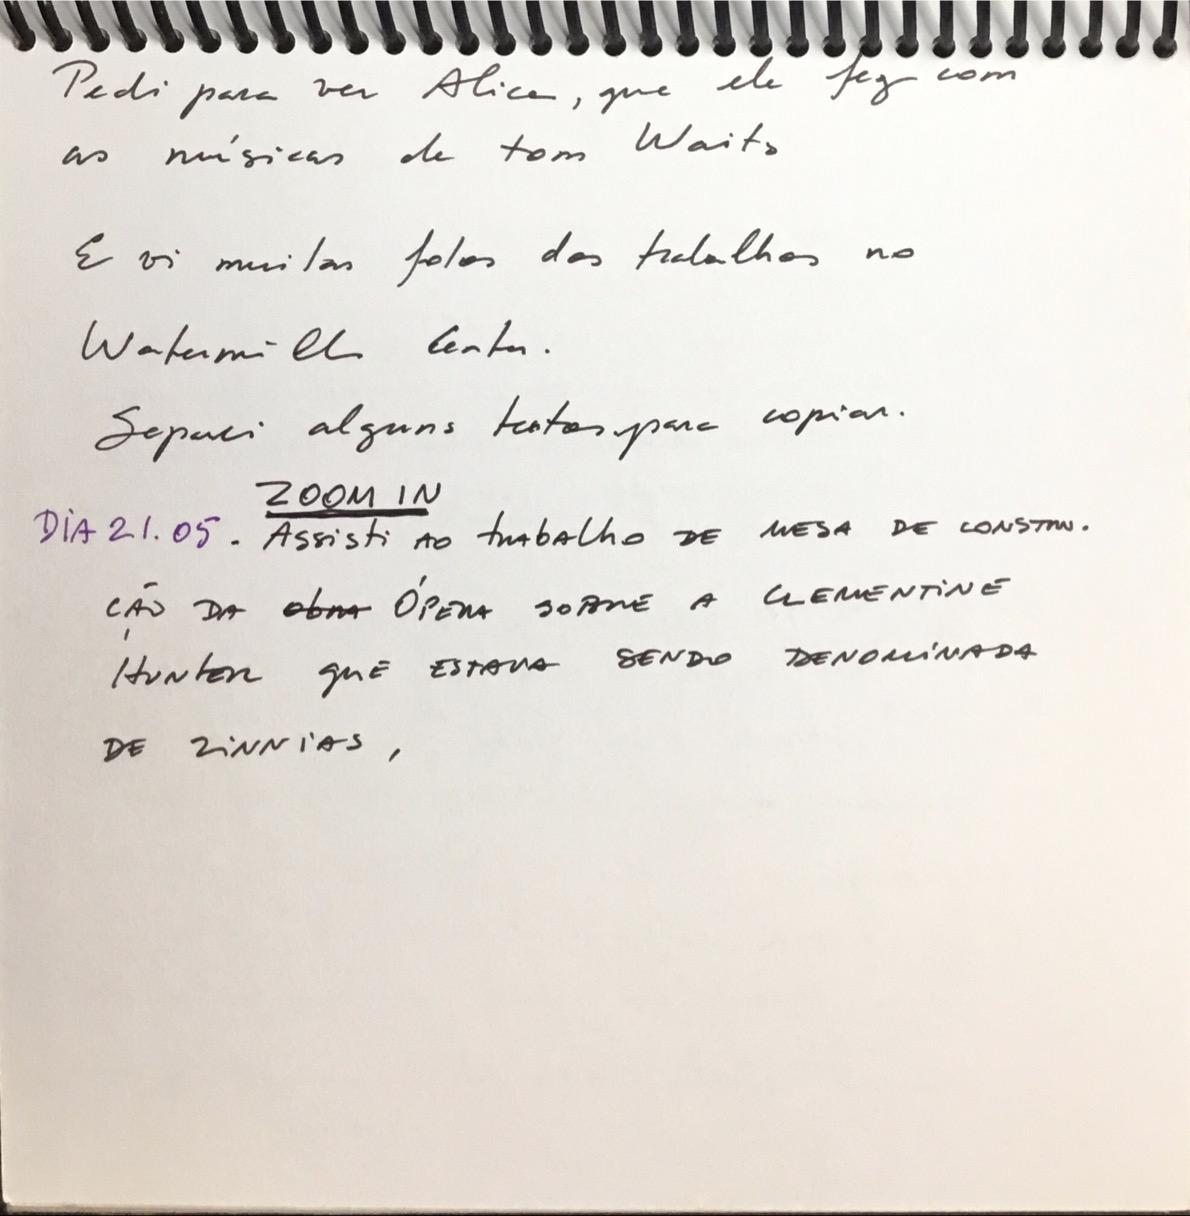 Pedi para ver Alice, que ele fez com
as músicas de tom Waits
E vi muitas fotos dos trabalhos no
Watermill Center.
Separei alguns textos para copiar.
ZOOM IN
DIA 21.05. Assisti AO trabalho DE MESA DE CONSTRU.
ÇÃO DA obra ÓPERA SOBRE A CLEMENTINE
HUNTER QUE ESTAVA SENDO DENOMINADA
DE ZINNIAS,